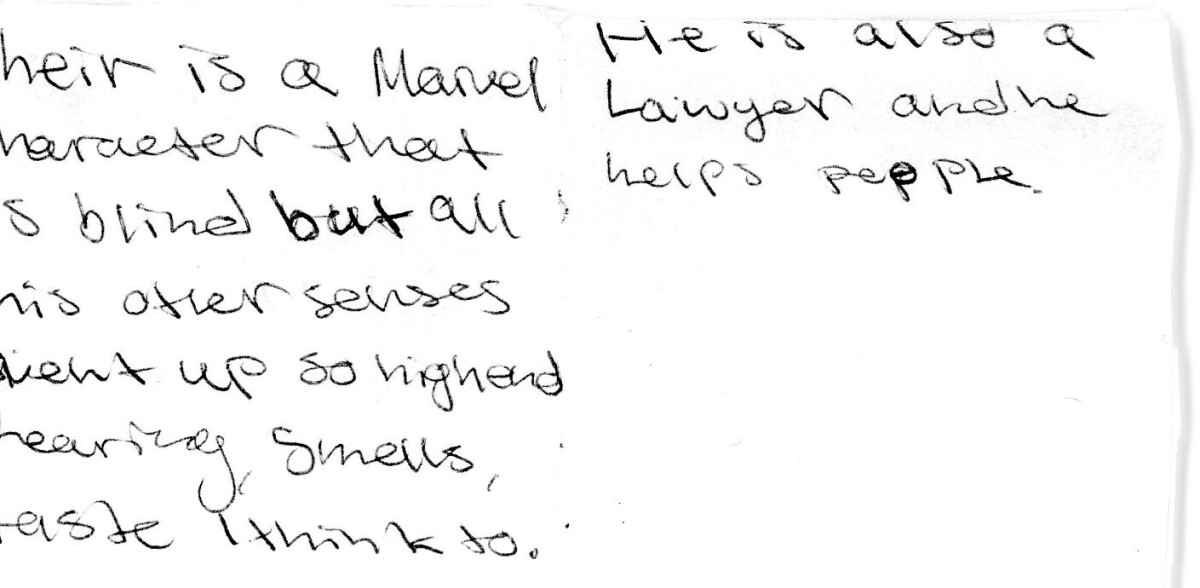 heir is a Marvel
haracter that
s blind but all
his other senses
went up so highend
hearing, Smells,
taste I think to.
He is also a
Lawyer and he
helps people.